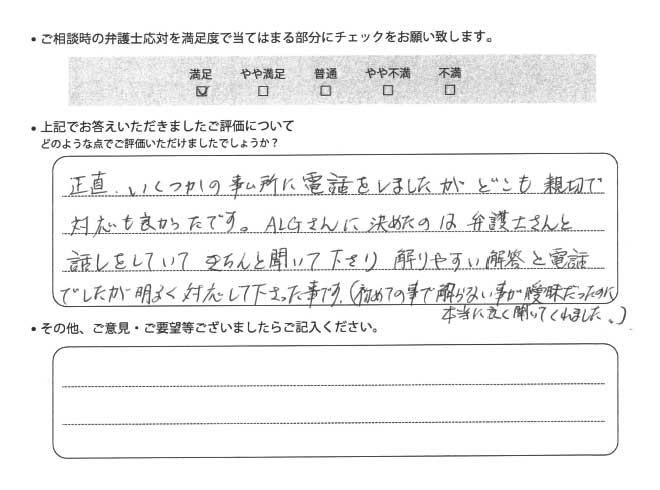 • ご相談時の弁護士応対を満足度で当てはまる部分にチェックをお願い致します。
満足 やや満足 普通 やや不満 不満
☑ ☐ ☐ ☐ ☐
• 上記でお答えいただきましたご評価について
どのような点でご評価いただけましたでしょうか？
正直、いくつかの事ム所に電話をしましたがどこも親切で
対応も良かったです。ALGさんに決めたのは弁護士さんと
話しをしていてきちんと聞いて下さり解りやすい解答と電話
でしたが明るく対応して下さった事です。(初めての事で解らない事が曖昧だったのに
本当に良く聞いてくれました。)
• その他、ご意見・ご要望等ございましたらご記入ください。